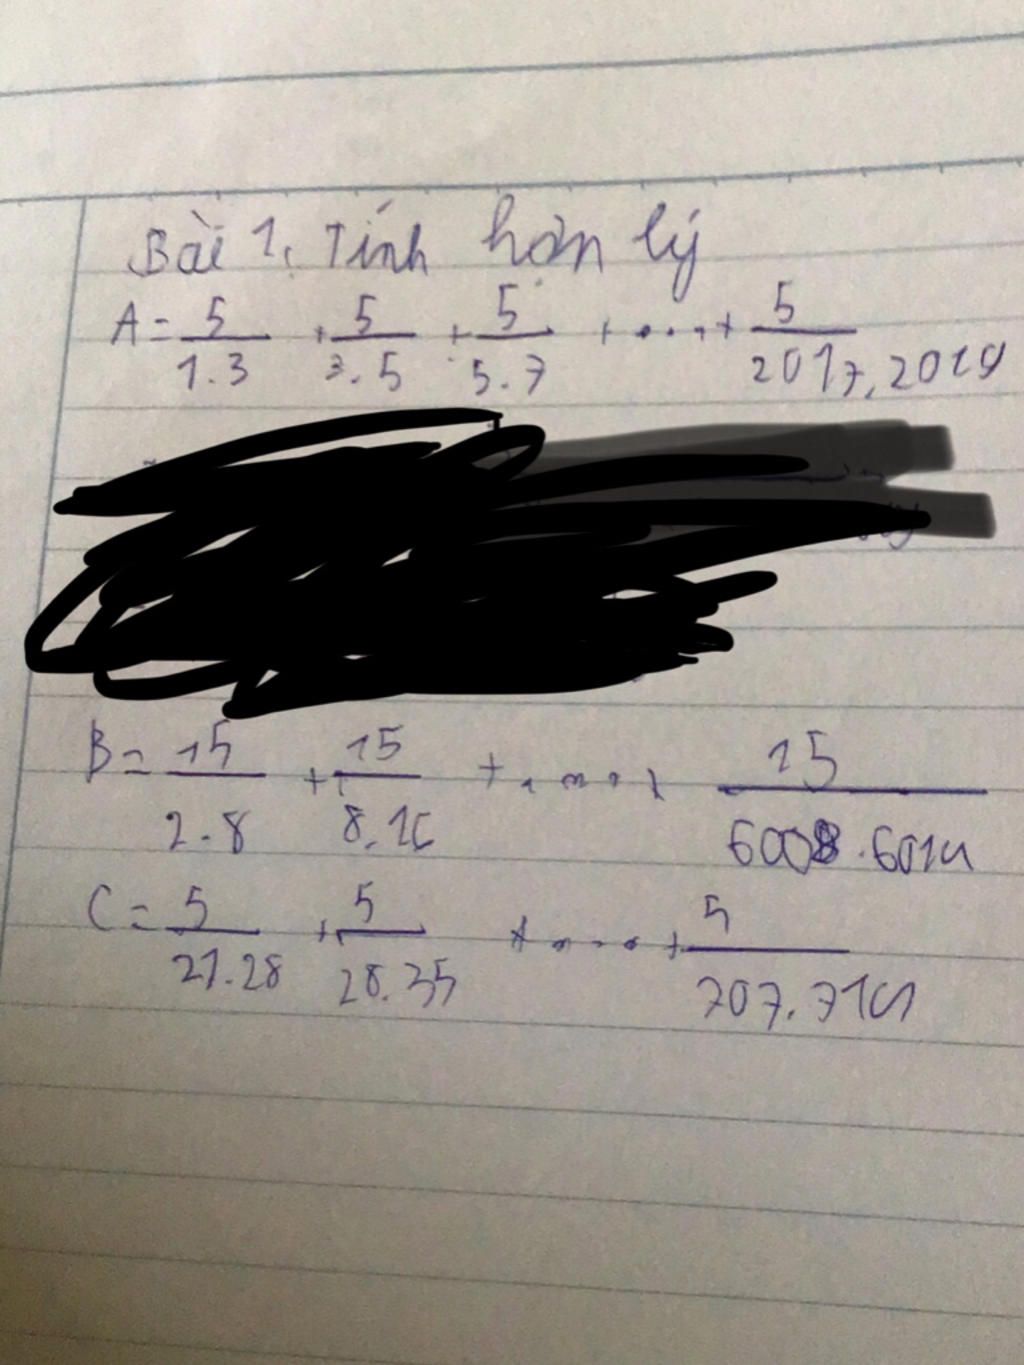 Bài 1. Tính hợp lý
A = 5/1.3 + 5/3.5 + 5/5.7 + .... + 5/2017.2019
B = 15/2.8 + 15/8.16 + .... + 15/6008.6014
C = 5/21.28 + 5/28.35 + .... + 5/707.714